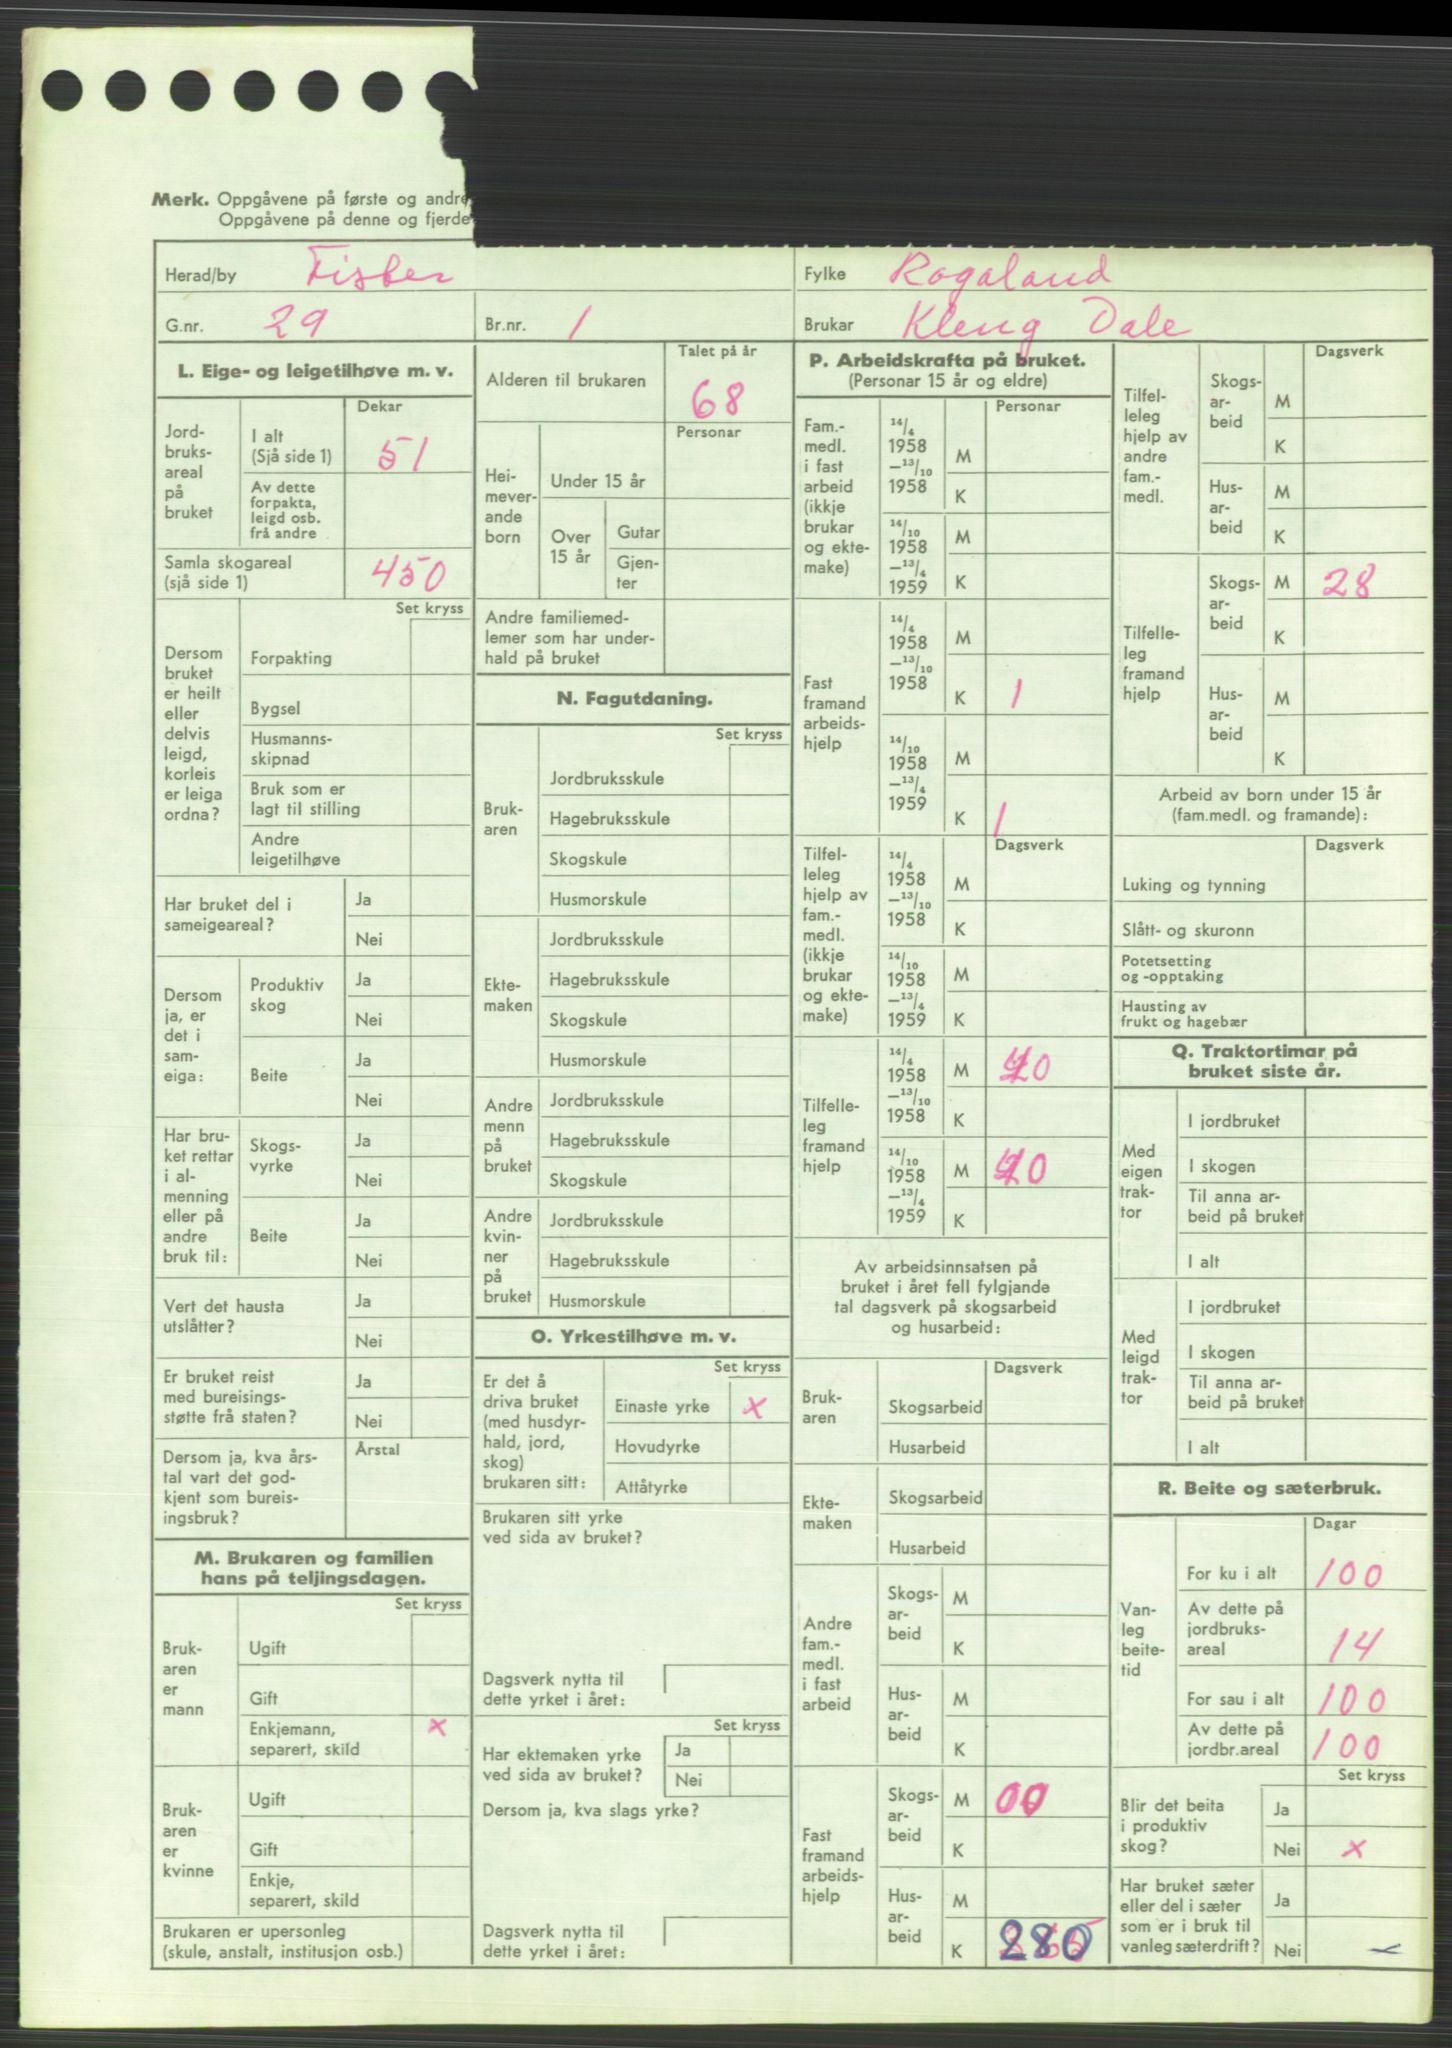 Merk. Oppgåvene på første og andre
Oppgåvene på denne og fjerde
Herad/by Fister
Fylke Rogaland
G.nr. 29 Br.nr. 1
Brukar Kleng Dale
L. Eige- og leigetilhøve m. v.
Dekar
Jord-
bruks-
areal
på
bruket
I alt
(Sjå side 1) 51
Av dette
forpakta,
leigd osb.
frå andre
Samla skogareal
(sjå side 1) 450
Set kryss
Dersom
bruket
er heilt
eller
delvis
leigd,
korleis
er leiga
ordna?
Forpakting
Bygsel
Husmanns-
skipnad
Bruk som er
lagt til stilling
Andre
leigetilhøve
Har bruket del i
sameigeareal?
Ja
Nei
Dersom
ja, er
det i
sam-
eiga:
Produktiv
skog
Ja
Nei
Beite
Ja
Nei
Har bru-
ket rettar
i al-
menning
eller på
andre
bruk til:
Skogs-
vyrke
Ja
Nei
Beite
Ja
Nei
Vert det hausta
utslåtter?
Ja
Nei
Er bruket reist
med bureisings-
støtte frå staten?
Ja
Nei
Dersom ja, kva års-
tal vart det god-
kjent som bureis-
ingsbruk?
Årstal
M. Brukaren og familien
hans på teljingsdagen.
Set kryss
Bruk-
aren
er
mann
Ugift
Gift
Enkjemann,
separert, skild x
Bruk-
aren
er
kvinne
Ugift
Gift
Enkje,
separert, skild
Brukaren er upersonleg
(skule, anstalt, institusjon osb.)
Talet på år
Alderen til brukaren 68
Personar
Hei-
mever-
ande
born
Under 15 år
Over
15 år
Gutar
Gjen-
ter
Andre familiemed-
lemer som har under-
hald på bruket
N. Fagutdaning.
Set kryss
Bruk-
aren
Jordbruksskule
Hagebruksskule
Skogskule
Husmorskule
Ekte-
maken
Jordbruksskule
Hagebruksskule
Skogskule
Husmorskule
Andre
menn
på
bruket
Jordbruksskule
Hagebruksskule
Skogskule
Andre
kvin-
ner
på
bruket
Jordbruksskule
Hagebruksskule
Husmorskule
O. Yrkestilhøve m. v.
Set kryss
Er det å
driva bruket
(med husdyr-
hald, jord,
skog)
brukaren sitt:
Einaste yrke x
Hovudyrke
Attåtyrke
Brukaren sitt yrke
ved sida av bruket?
Dagsverk nytta til
dette yrket i året:
Set kryss
Har ektemaken yrke
ved sida av bruket?
Ja
Nei
Dersom ja, kva slags yrke?
Dagsverk nytta til
dette yrket i året:
P. Arbeidskrafta på bruket.
(Personar 15 år og eldre)
Personar
Fam.-
medl.
i fast
arbeid
(ikkje
brukar
og ekte-
make)
14/4
1958
—13/10
1958
M
K
14/10
1958
—13/4
1959
M
K
Fast
framand
arbeids-
hjelp
14/4
1958
—13/10
1958
M
K 1
14/10
1958
—13/4
1959
M
K 1
Dagsverk
Tilfel-
leleg
hjelp av
fam.-
medl.
(ikkje
brukar
og ekte-
make)
14/4
1958
—13/10
1958
M
K
14/10
1958
—13/4
1959
M
K
Tilfelle-
leg
framand
hjelp
14/4
1958
—13/10
1958
M
K
14/10
1958
—13/4
1959
M
K
Av arbeidsinnsatsen på
bruket i året fell fylgjande
tal dagsverk på skogsarbeid
og husarbeid:
Dagsverk
Bruk-
aren
Skogsarbeid
Husarbeid
Ekte-
maken
Skogsarbeid
Husarbeid
Andre
fam.-
medl.
i fast
arbeid
Skogs-
ar-
beid
M
K
Hus-
ar-
beid
M
K
Fast
framand
arbeids-
hjelp
Skogs-
ar-
beid
M 00
K
Hus-
ar-
beid
M
K 280
Dagsverk
Tilfel-
leleg
hjelp av
andre
fam.-
medl.
Skogs-
ar-
beid
M
K
Hus-
ar-
beid
M
K
Tilfelle-
leg
framand
hjelp
Skogs-
ar-
beid
M 28
K
Hus-
ar-
beid
M
K
Arbeid av born under 15 år
(fam.medl. og framande):
Dagsverk
Luking og tynning
Slått- og skuronn
Potetsetting
og -opptaking
Hausting av
frukt og hagebær
Q. Traktortimar på
bruket siste år.
Med
eigen
trak-
tor
I jordbruket
I skogen
Til anna ar-
beid på bruket
I alt
Med
leigd
trak-
tor
I jordbruket
I skogen
Til anna ar-
beid på bruket
I alt
R. Beite og sæterbruk.
Dagar
Van-
leg
beite-
tid
For ku i alt 100
Av dette på
jordbruks-
areal 14
For sau i alt 100
Av dette på
jordbr.areal 100
Set kryss
Blir det beita
i produktiv
skog?
Ja
Nei x
Har bruket sæter
eller del i sæter
som er i bruk til
vanleg sæterdrift?
Ja
Nei